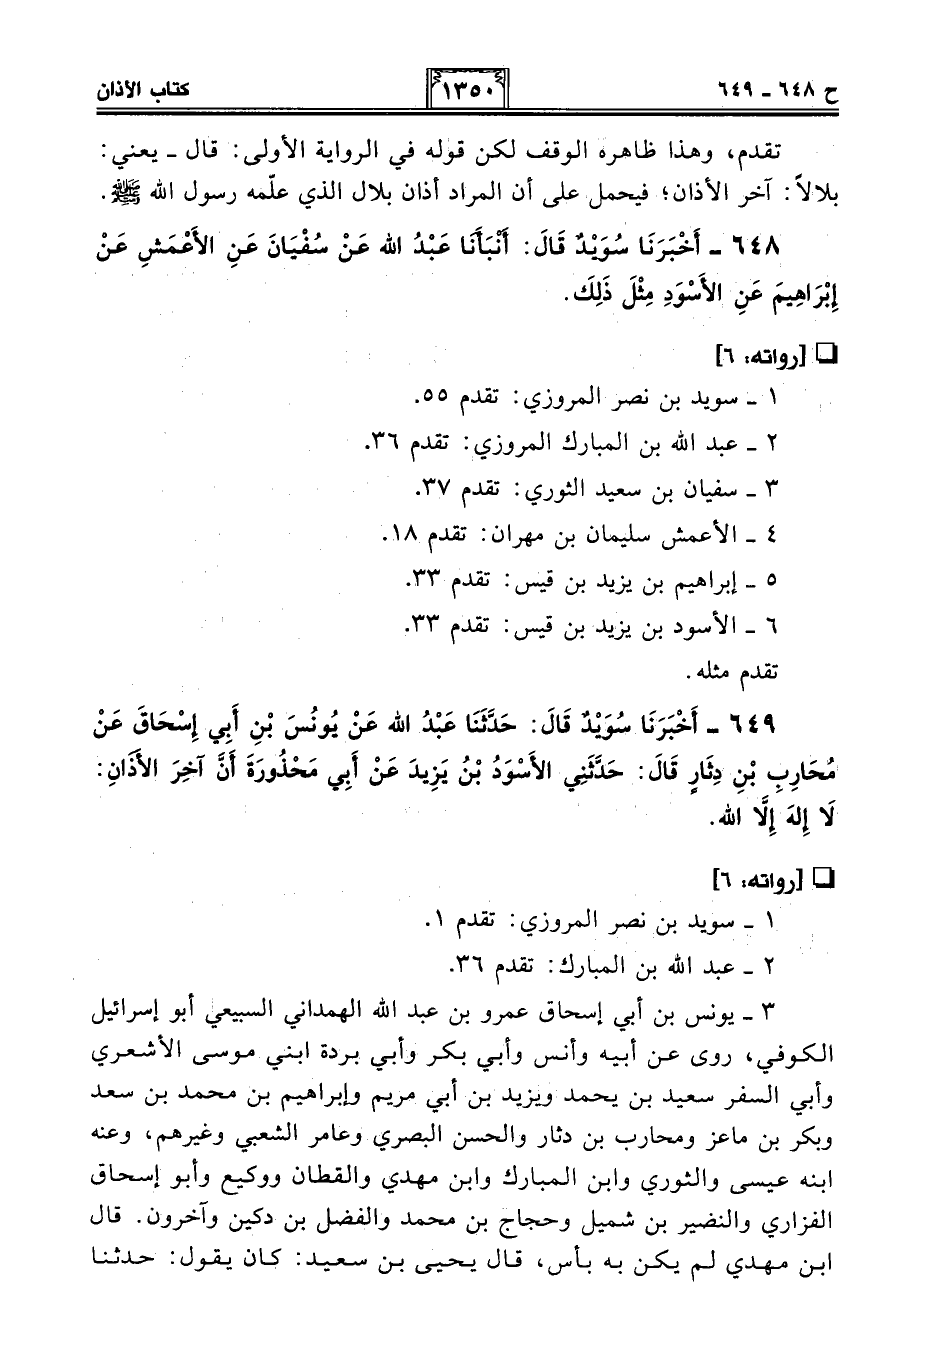 ح ٦٤٨ ـ ٦٤٩
١٣٥٠
كتاب الأذان
تقدم، وهذا ظاهره الوقف لكن قوله في الرواية الأولى: قال ـ يعني:
بلالاً: آخر الأذان؛ فيحمل على أن المراد أذان بلال الذي علّمه رسول الله ﷺ.
٦٤٨ ـ أَخْبَرَنَا سُوَيْدٌ قَالَ: أَنْبَأَنَا عَبْدُ الله عَنْ سُفْيَانَ عَنِ الأَعْمَشِ عَنْ
إِبْرَاهِيمَ عَنِ الأَسْوَدِ مِثْلَ ذَلِكَ.
❏ [رواته: ٦]
١ ـ سويد بن نصر المروزي: تقدم ٥٥.
٢ ـ عبد الله بن المبارك المروزي: تقدم ٣٦.
٣ ـ سفيان بن سعيد الثوري: تقدم ٣٧.
٤ ـ الأعمش سليمان بن مهران: تقدم ١٨.
٥ ـ إبراهيم بن يزيد بن قيس: تقدم ٣٣.
٦ ـ الأسود بن يزيد بن قيس: تقدم ٣٣.
تقدم مثله.
٦٤٩ ـ أَخْبَرَنَا سُوَيْدٌ قَالَ: حَدَّثَنَا عَبْدُ الله عَنْ يُونُسَ بْنِ أَبِي إِسْحَاقَ عَنْ
مُحَارِبِ بْنِ دِثَارٍ قَالَ: حَدَّثَنِي الأَسْوَدُ بْنُ يَزِيدَ عَنْ أَبِي مَحْذُورَةَ أَنَّ آخِرَ الأَذَانِ:
لَا إِلهَ إِلَّا الله.
❏ [رواته: ٦]
١ ـ سويد بن نصر المروزي: تقدم ١.
٢ ـ عبد الله بن المبارك: تقدم ٣٦.
٣ ـ يونس بن أبي إسحاق عمرو بن عبد الله الهمداني السبيعي أبو إسرائيل
الكوفي، روى عن أبيه وأنس وأبي بكر وأبي بردة ابني موسى الأشعري
وأبي السفر سعيد بن يحمد ويزيد بن أبي مريم وإبراهيم بن محمد بن سعد
وبكر بن ماعز ومحارب بن دثار والحسن البصري وعامر الشعبي وغيرهم، وعنه
ابنه عيسى والثوري وابن المبارك وابن مهدي والقطان ووكيع وأبو إسحاق
الفزاري والنضير بن شميل وحجاج بن محمد والفضل بن دكين وآخرون. قال
ابن مهدي لم يكن به بأس، قال يحيى بن سعيد: كان يقول: حدثنا